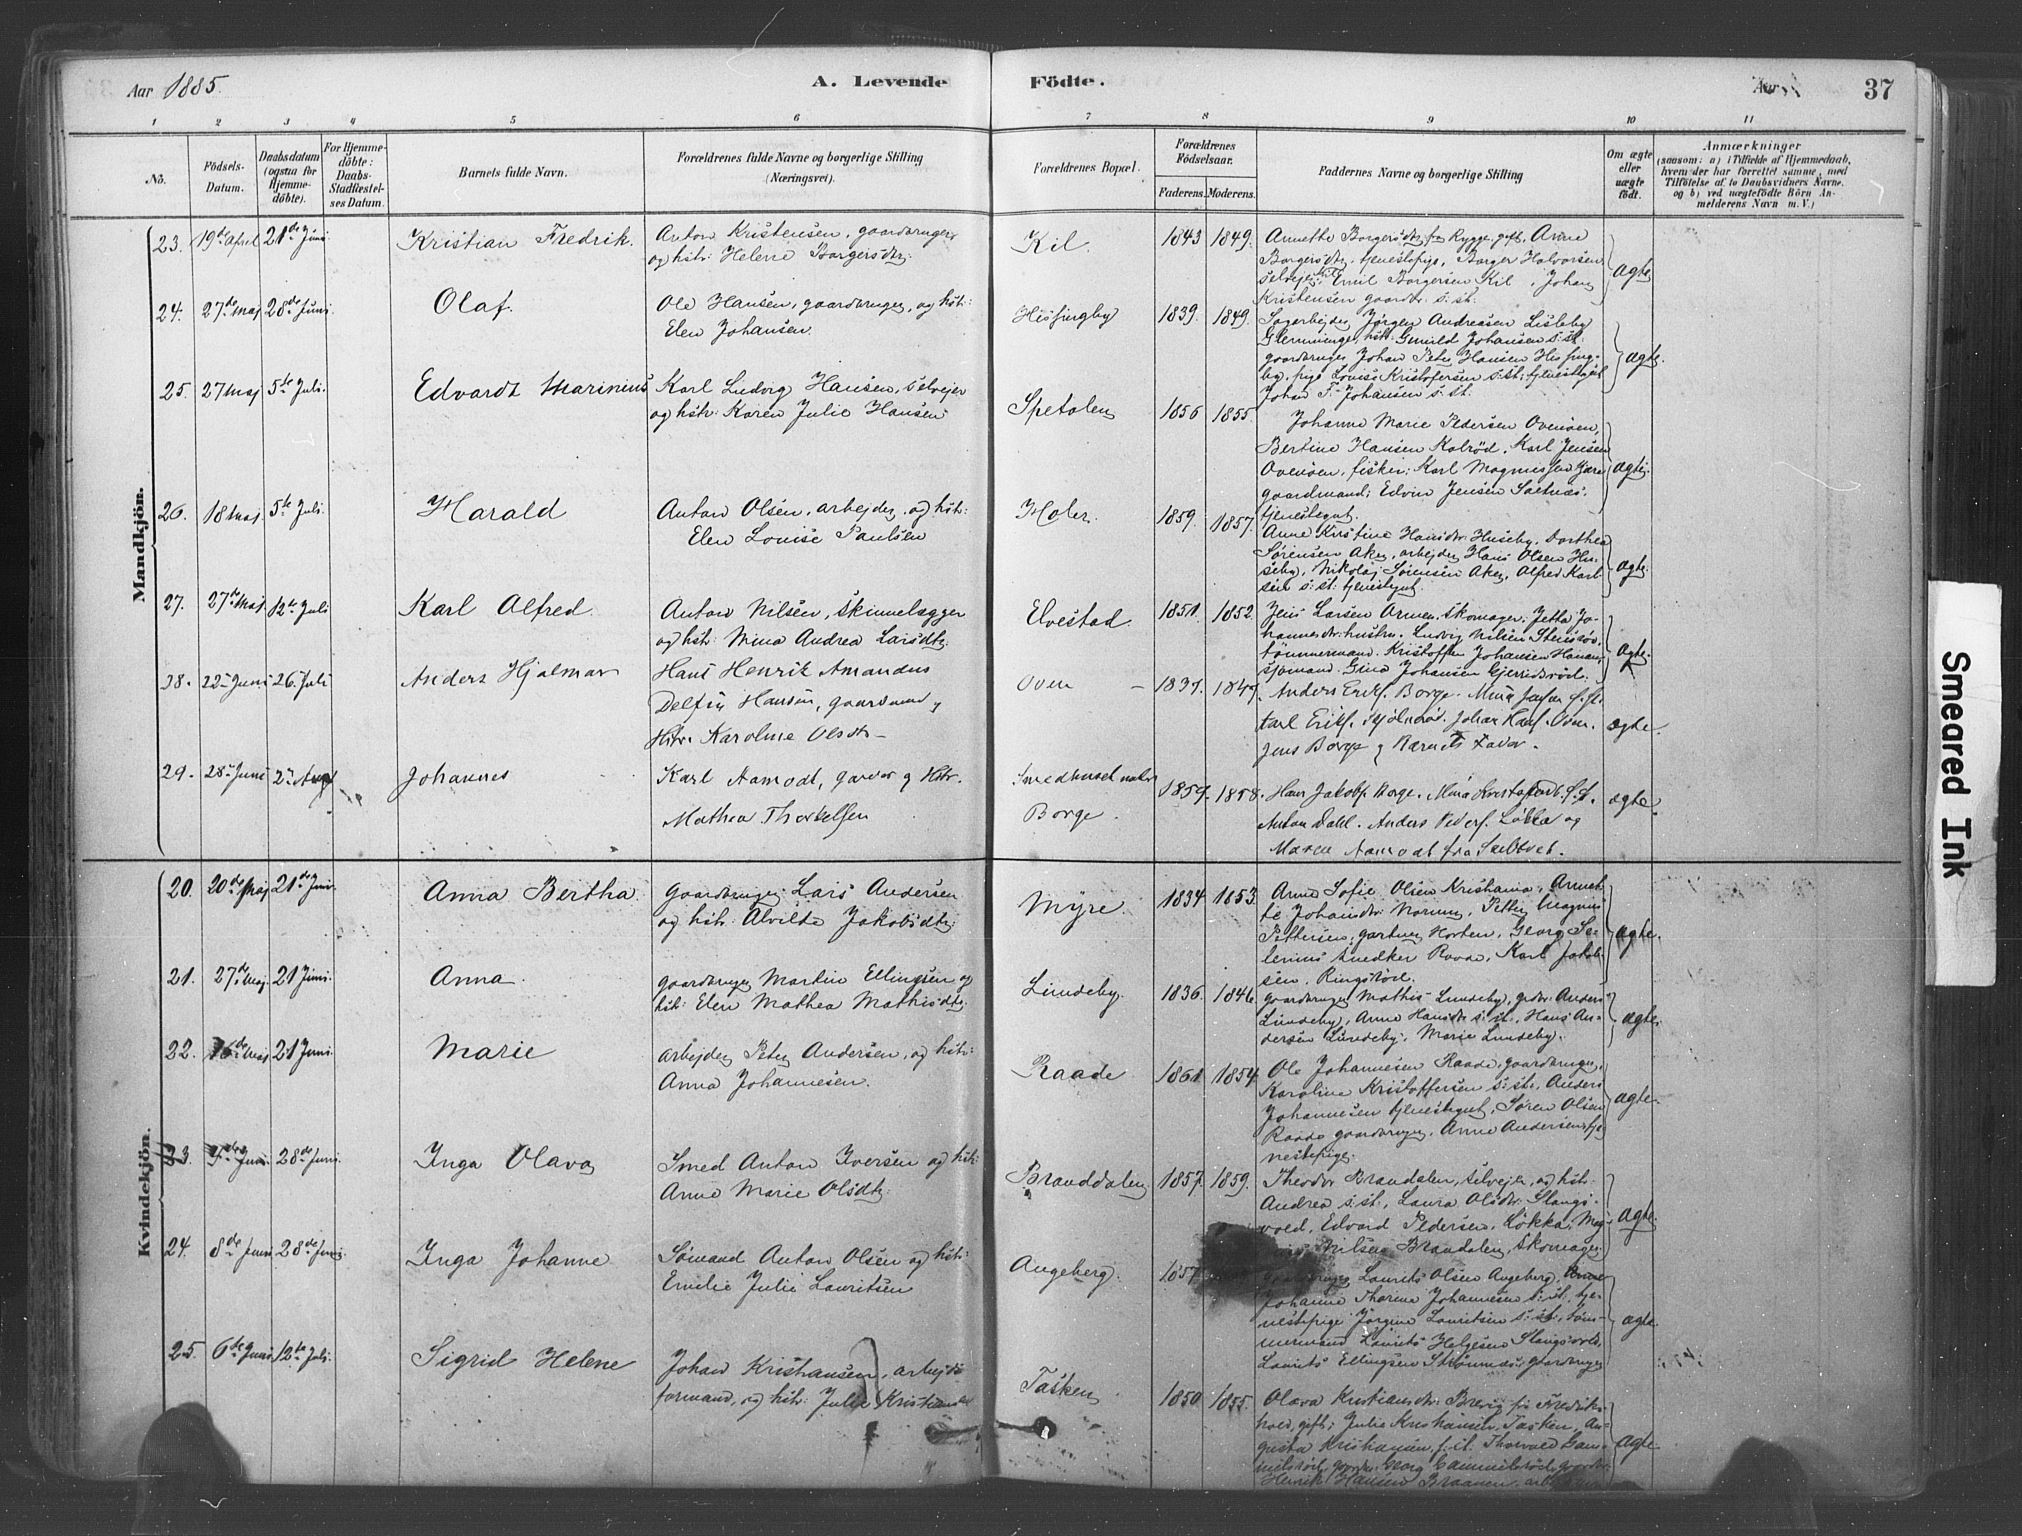 Aar 1885.
A. Levende Födte.
Aar
37
1 2 3 4 5 6 7 8 9 10 11
No.
Födsels-Datum.
Daabsdatum (ogsaa for Hjemmedöbte).
For Hjemmedöbte: Daabs-Stadfæstelses Datum.
Barnets fulde Navn.
Forældrenes fulde Navne og borgerlige Stilling (Næringsvei).
Forældrenes Bopæl.
Forældrenes Födselsaar.
Faderens. Moderens.
Faddernes Navne og borgerlige Stilling
Om ægte eller uægte födt.
Anmærkninger
(saasom: a) i Tilfælde af Hjemmedaab, hvem der har forrettet samme, med Tilföielse af to Daabsvidners Navne, og b) ved uægtefödte Börn Anmelderens Navn m. V.)
Mandkjön.
23. 19de April 21de Juni Kristian Fredrik. Anton Kristensen, gaardbruger
og hstr: Helene Borgersdtr. Kil 1843 1849. Annette Borgersdtr fra Rygge, gift, Anne
Borgersdtr. tjenestepige, Borger Halvorsen
selvejer, Emil Borgersen Kil, Johan
Kristensen gaardbr. s: st: ægte
24. 27de Maj 28de Juni Olaf. Ole Hansen, gaardbruger, og hstr:
Elen Johansen. Hissingby 1839. 1849. Sagarbejder Jørgen Andreasen Lisleby
Glemminge, hstr: Gunild Johansen s: st:
gaardbruger Johan Peter Hansen Hissing-
by, pige Louise Kristofersen s: st: tjenestegut
Johan F. Johansen s: st. ægte.
25. 27 Maj 5te Juli. Edvardt Marinius Karl Ludvig Hansen, selvejer
og hstr: Karen Julie Hansen Spetalen 1856 1855. Johanne Marie Pedersen Ovenøen,
Bertine Hansen Kalrød, Karl Jensen
Ovenøen, fisker; Karl Magnussen
gaardmand; Edvin Jensen Saltnæs.
tjenestegut. ægte.
26. 18 Maj. 5te Juli. Harald Anton Olsen, arbejder, og hstr:
Elen Louise Paulsen Holer. 1859. 1857. Anne Kristine Hansdtr. Huseby, Dorthea
Sørensen Aker, arbejder Hans Olsen Hu-
seby, Nikolaj Sørensen Aker, Alfred Karl-
sen s: st: tjenestegut. ægte.
27. 27de Maj. 12te Juli Karl Alfred. Anton Nilsen, Skindelægger
og hstr: Mina Andrea Larsdtr. Elvestad 1851. 1852. Jens Larsen Armen, skomager; Jetta Jo-
hannesdtr: hustru. Ludvig Nilsen Stensrød
tømmermand. Kristoffer Johansen
sjømand. Gina Johansen Gjerridsrød. ægte.
28. 22 Juni 26. Juli Anders Hjalmar Hans Henrik Amandus
Delfin Hansen, gaardmand,
Hstr. Karoline Olsdtr. Oven 1837. 1847. Anders Eriks. Borge. Mina Jensen s. st.
Karl Eriks. Johan Hans. Oven
Jens Borge og Barnets Fader. ægte.
29. 28 Juni 2 Aug Johannes Karl Aamodt, garver og Hstr.
Mathea Thorkelsen Smedhuset
Borge. 1859. 1858. Hans Jakobs. Borge. Mina Kristofersd. s. st.
Anton Dahl. Anders Peders. Løkka og
Maren Aamodt fra ægte.
Kvindekjön.
20. 20de Maj 21de Juni Anna Bertha. Gaardbruger Lars Andersen
og hstr: Alvilde Jakobsdtr. Myre. 1834 1853. Anne Sofie Olsen Kristiania, Annet-
te Johansdtr. Petter Magnus
Pettersen, gartner Horten, Georg Se-
lenius snedker Raade, Karl Jakob-
sen. Ringstød. ægte.
21. 27de Maj. 21 Juni. Anna. gaardbruger Martin Ellingsen og
hstr: Elen Mathea Mathisdtr. Lundeby. 1836. 1846. gaardbruger Mathis Lundeby, grdbr: Anders
Lundeby, Anne Hansdtr s: st:, Hans An-
dersen Lundeby. Marie Lundeby. ægte.
22. 16de Maj 21 Juni. Marie arbejder Peter Andersen, og hstr:
Anna Johannesen. Raade 1861 1854 Ole Johannesen Raade, gaardbruger,
Karoline Kristoffersen s: st:, Anders
Johannesen tjenestegut, Søren Olsen
Raade gaardbruger, Anne Andersen, tje-
nestepige. ægte.
23. 5de Juni. 28de Juni. Inga Olava Smed Anton Iversen og hstr:
Anne Marie Olsdtr. Branddalen 1857. 1859. Theodor Brandalen, selvejer, og hstr.
Andrea s: st:, Laura Olsdtr. Slangs-
vold, Edvard Pedersen, Løkka, Mag-
Nilsen Brandalen, skomager. ægte.
24. 8de Juni 28de Juni. Inga Johanne Sømand Anton Olsen og hstr:
Emilie Julie Lauritsen Angeberg. 1857. gaardbruger Laurits Olsen Angeberg, Anne
Johanne Thorine Johannesen s: st:, tje-
nestepige Jørgine Lauritsen s: st:, tøm-
mermand Laurits Helgesen Slangsvold,
Laurits Ellingsen Strømnes, gaardbruger ægte.
25. 6te Juni. 12te Juli. Sigrid Helene Johan Kristiansen, arbejds-
formand, og hstr: Julie Kristiansd. Tasken 1850 1855. Olava Kristiansdtr: Brevig fra Fredriks-
hald, gift; Julie Kristiansen, Tasken, Au-
gusta Kristiansen, s. st. Thorvald Gam-
melsrød, gaardbr: Georg Gammelsrød, gaardbr.
Henrik Hansen Braanen,
ægte
Smeared Ink